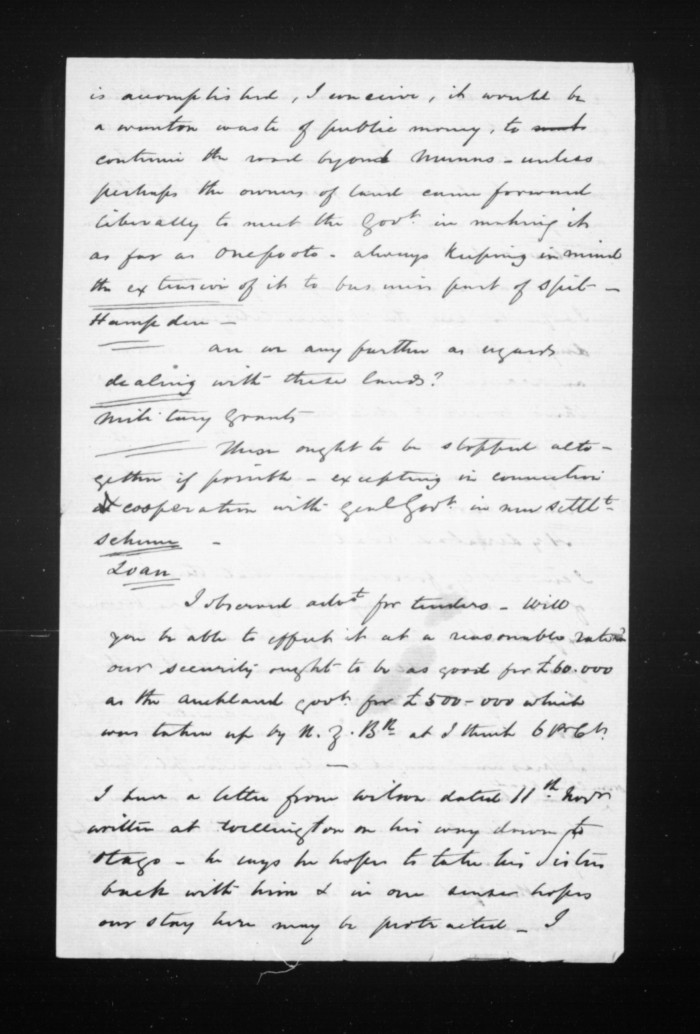 is accomplished, I conceive, it would be
a wanton waste of public money, to
continue the road beyond Munns - unless
perhaps the owners of land came forward
liberally to meet the Govt. in making it
as far as Onepoto - always keeping in mind
the extension of it to business part of Spit -
Hampden -
are we any further as regards
dealing with these lands?
Military Grants
These ought to be stopped alto-
gether if possible - excepting in connection
& cooperation with Genl Govt. in new settlt.
scheme -
Loan
I observed advt. for tenders - Will
you be able to effect it at a reasonable rate
our security ought to be as good for £60.000
as the Auckland govt. for £500-000 which
was taken up by N. Z. Bk at I think 6 Pr Ct.
I have a letter from Wilson dated 11th Novr
written at Wellington on his way down to
Otago - he says he hopes to take his Sister
back with him & in one sense hopes
our stay here may be protracted - I